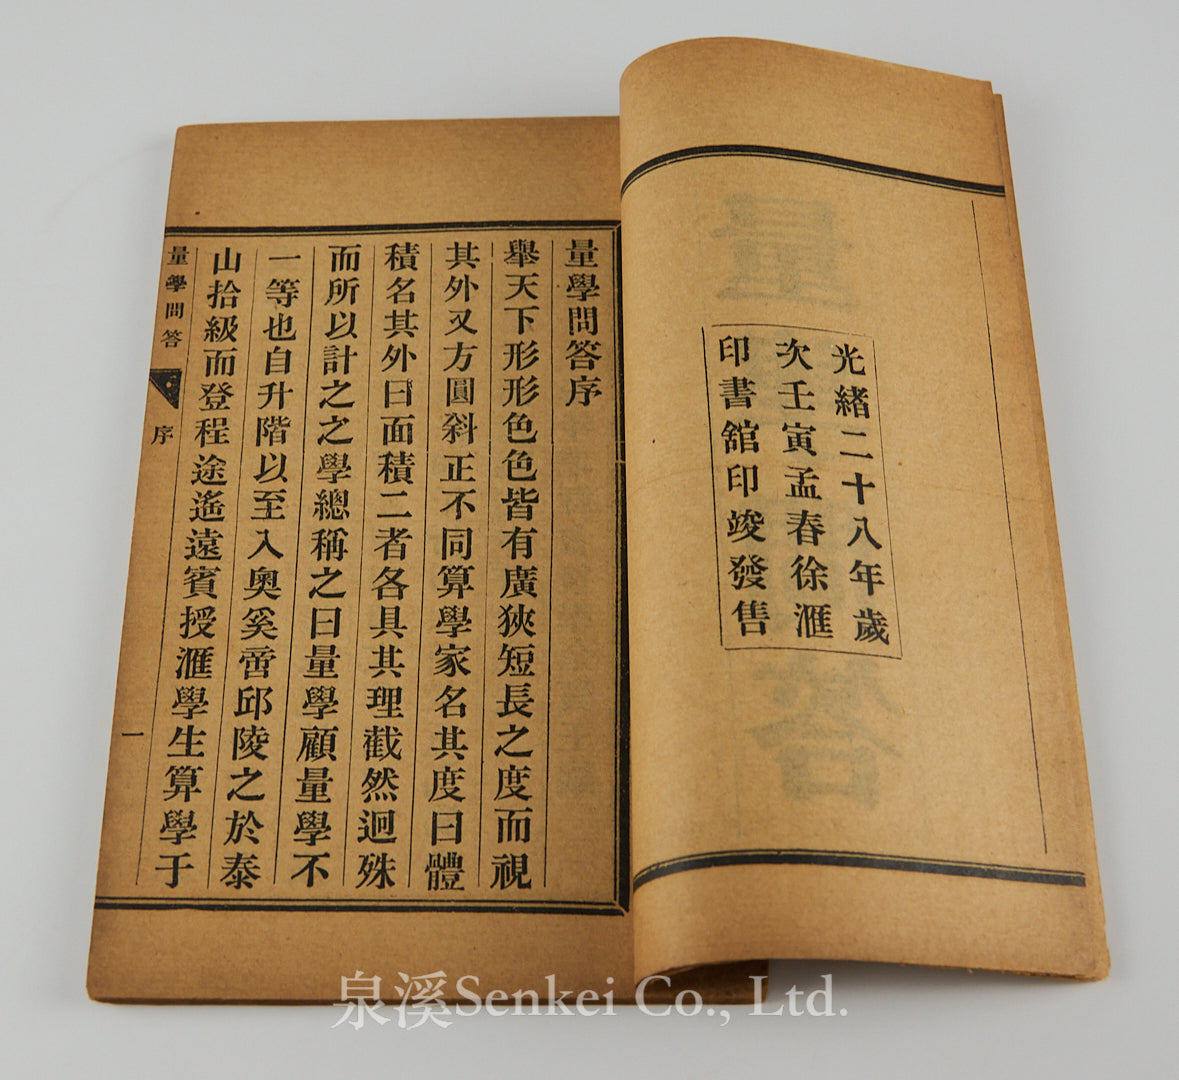 光緒二十八年歲
次壬寅孟春徐滙
印書舘印竣發售
量學問答序
舉天下形形色色皆有廣狹短長之度而視
其外又方圓斜正不同算學家名其度曰體
積名其外曰面積二者各具其理截然迥殊
而所以計之之學總稱之曰量學顧量學不
一等也自升階以至入奧奚啻邱陵之於泰
山拾級而登程途遙遠賓授滙學生算學于
量學問答
序
一
泉溪Senkei Co., Ltd.